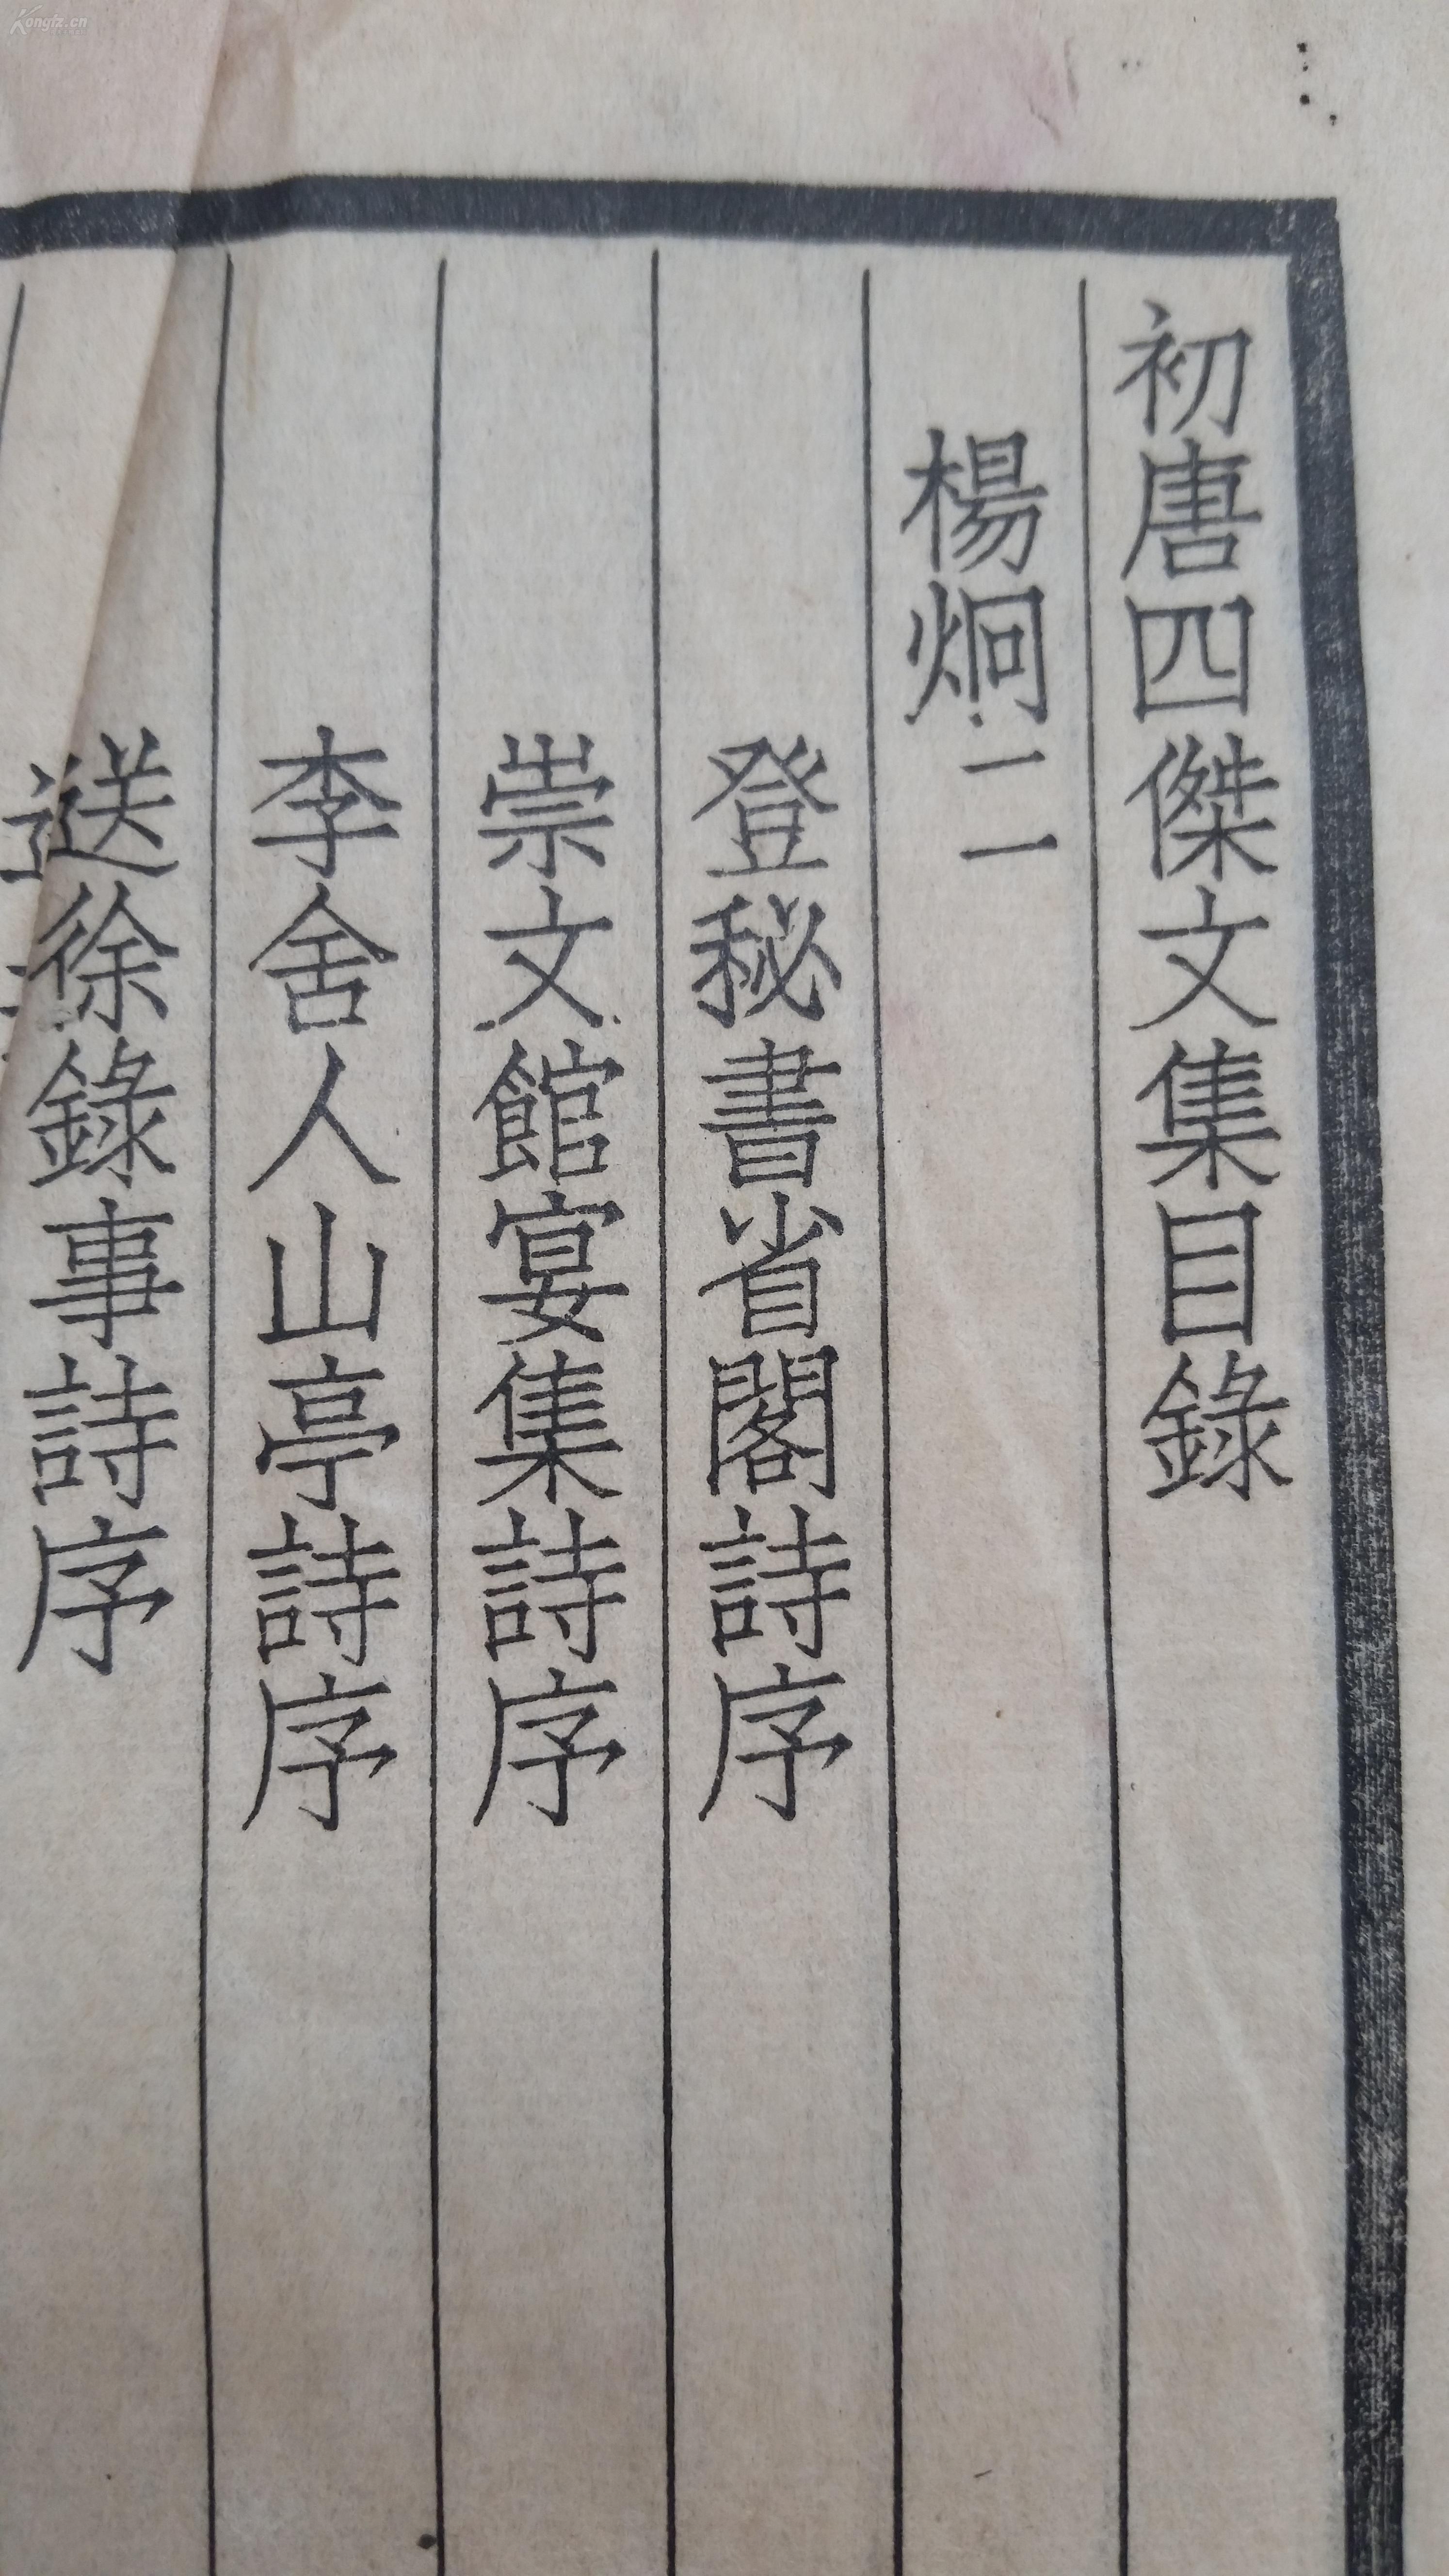 初唐四傑文集目錄
楊炯二
登秘書省閣詩序
崇文館宴集詩序
李舍人山亭詩序
送徐錄事詩序
Kongfz.cn